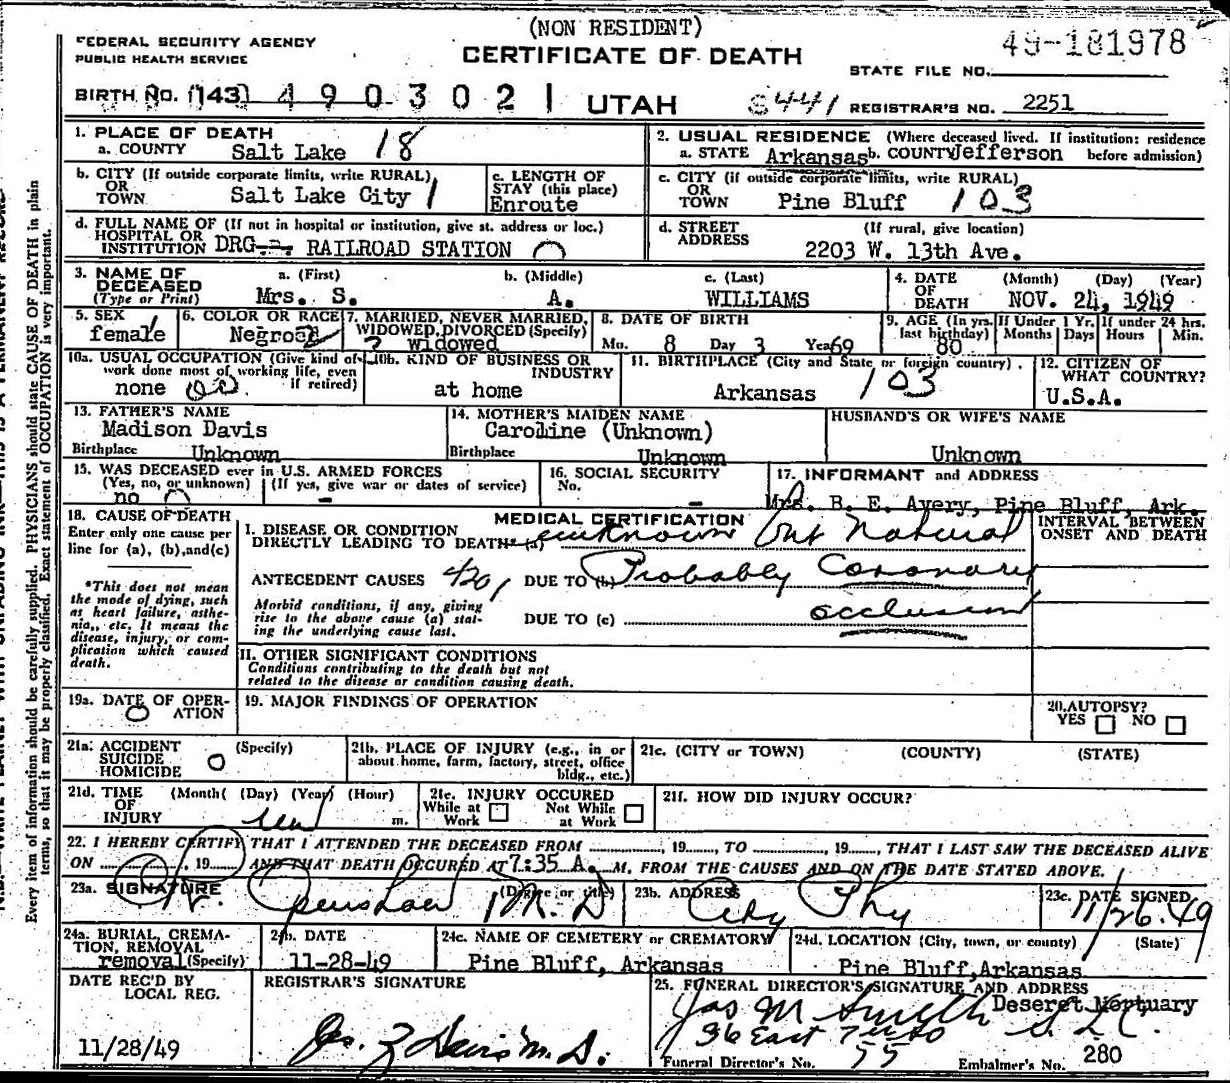 (NON RESIDENT)
FEDERAL SECURITY AGENCY
PUBLIC HEALTH SERVICE
CERTIFICATE OF DEATH
49-181978
STATE FILE NO.
BIRTH No. (143) 4 9 0 3 0 2 1 UTAH S441 REGISTRAR'S NO. 2251
1. PLACE OF DEATH
a. COUNTY Salt Lake 18
2. USUAL RESIDENCE (Where deceased lived. If institution: residence before admission)
a. STATE Arkansas b. COUNTY Jefferson
b. CITY (If outside corporate limits, write RURAL)
OR
TOWN Salt Lake City 1
c. LENGTH OF
STAY (this place)
Enroute
c. CITY (if outside corporate limits, write RURAL)
OR
TOWN Pine Bluff 103
d. FULL NAME OF (If not in hospital or institution, give st. address or loc.)
HOSPITAL OR
INSTITUTION DRG RAILROAD STATION
d. STREET (If rural, give location)
ADDRESS 2203 W. 13th Ave.
3. NAME OF DECEASED
(Type or Print)
a. (First) b. (Middle) c. (Last)
Mrs. S. A. WILLIAMS
4. DATE OF DEATH (Month) (Day) (Year)
NOV. 24, 1949
5. SEX
female
6. COLOR OR RACE
Negro
7. MARRIED, NEVER MARRIED,
WIDOWED, DIVORCED (Specify)
widowed
8. DATE OF BIRTH
Mo. 8 Day 3 Year 69
9. AGE (In yrs. last birthday)
80
If Under 1 Yr. Months Days
If under 24 hrs. Hours Min.
10a. USUAL OCCUPATION (Give kind of work done most of working life, even if retired)
none
10b. KIND OF BUSINESS OR INDUSTRY
at home
11. BIRTHPLACE (City and State or foreign country)
Arkansas 103
12. CITIZEN OF WHAT COUNTRY?
U.S.A.
13. FATHER'S NAME
Madison Davis
Birthplace Unknown
14. MOTHER'S MAIDEN NAME
Caroline (Unknown)
Birthplace Unknown
HUSBAND'S OR WIFE'S NAME
Unknown
15. WAS DECEASED ever in U.S. ARMED FORCES
(Yes, no, or unknown) (If yes, give war or dates of service)
no -
16. SOCIAL SECURITY
No. -
17. INFORMANT and ADDRESS
Mrs. B. E. Avery, Pine Bluff, Ark.
18. CAUSE OF DEATH
Enter only one cause per line for (a), (b), and (c)
*This does not mean the mode of dying, such as heart failure, asthenia, etc. It means the disease, injury, or complication which caused death.
MEDICAL CERTIFICATION
I. DISEASE OR CONDITION
DIRECTLY LEADING TO DEATH* (a) unknown but Natural
ANTECEDENT CAUSES 4201 DUE TO (b) Probably Coronary
Morbid conditions, if any, giving rise to the above cause (a) stating the underlying cause last.
DUE TO (c) occlusion
INTERVAL BETWEEN ONSET AND DEATH
II. OTHER SIGNIFICANT CONDITIONS
Conditions contributing to the death but not related to the disease or condition causing death.
19a. DATE OF OPERATION
O
19. MAJOR FINDINGS OF OPERATION
20. AUTOPSY?
YES NO
21a. ACCIDENT (Specify)
SUICIDE O
HOMICIDE
21b. PLACE OF INJURY (e.g., in or about home, farm, factory, street, office bldg., etc.)
21c. (CITY or TOWN) (COUNTY) (STATE)
21d. TIME OF INJURY (Month) (Day) (Year) (Hour) m.
21e. INJURY OCCURED
While at Work Not While at Work
21f. HOW DID INJURY OCCUR?
22. I HEREBY CERTIFY THAT I ATTENDED THE DECEASED FROM ........, 19......, TO ........, 19......, THAT I LAST SAW THE DECEASED ALIVE
ON ........, 19...... AND THAT DEATH OCCURED AT 7:35 A. M, FROM THE CAUSES AND ON THE DATE STATED ABOVE.
23a. SIGNATURE (Degree or title)
M. D
23b. ADDRESS
City Phy
23c. DATE SIGNED
11/26.49
24a. BURIAL, CREMATION, REMOVAL
removal (Specify)
24b. DATE
11-28-49
24c. NAME OF CEMETERY or CREMATORY
Pine Bluff, Arkansas
24d. LOCATION (City, town, or county) (State)
Pine Bluff, Arkansas
DATE REC'D BY LOCAL REG.
11/28/49
REGISTRAR'S SIGNATURE
25. FUNERAL DIRECTOR'S SIGNATURE AND ADDRESS
Deseret Mortuary
Jas M Smith
36 East 7 So S.L.C.
Funeral Director's No. 55 Embalmer's No. 280
Every item of information should be carefully supplied. PHYSICIANS should state CAUSE OF DEATH in plain
terms, so that it may be properly classified. Exact statement of OCCUPATION is very important.